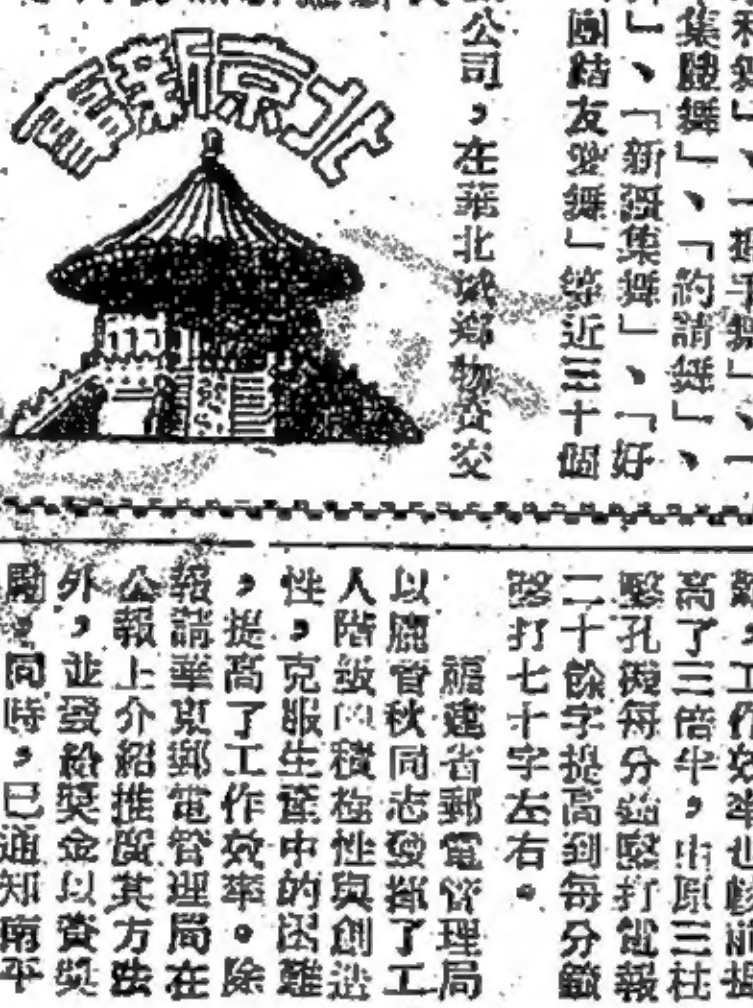 北京新書
集體舞」、「約請舞」、
」、「新疆集舞」、「好
團結友愛舞」等近三十個
公司，在華北城鄉物資交
高了三倍半，由原三柱
鑿孔機每分鐘鑿打電報
二十餘字提高到每分鐘
鑿打七十字左右。
福建省郵電管理局
以鹿管秋同志發揮了工
人階級的積極性與創造
性，克服生產中的困難
，提高了工作效率。除
報請華東郵電管理局在
公報上介紹推廣其方法
外，並發給獎金以資獎
勵，同時，已通知南平